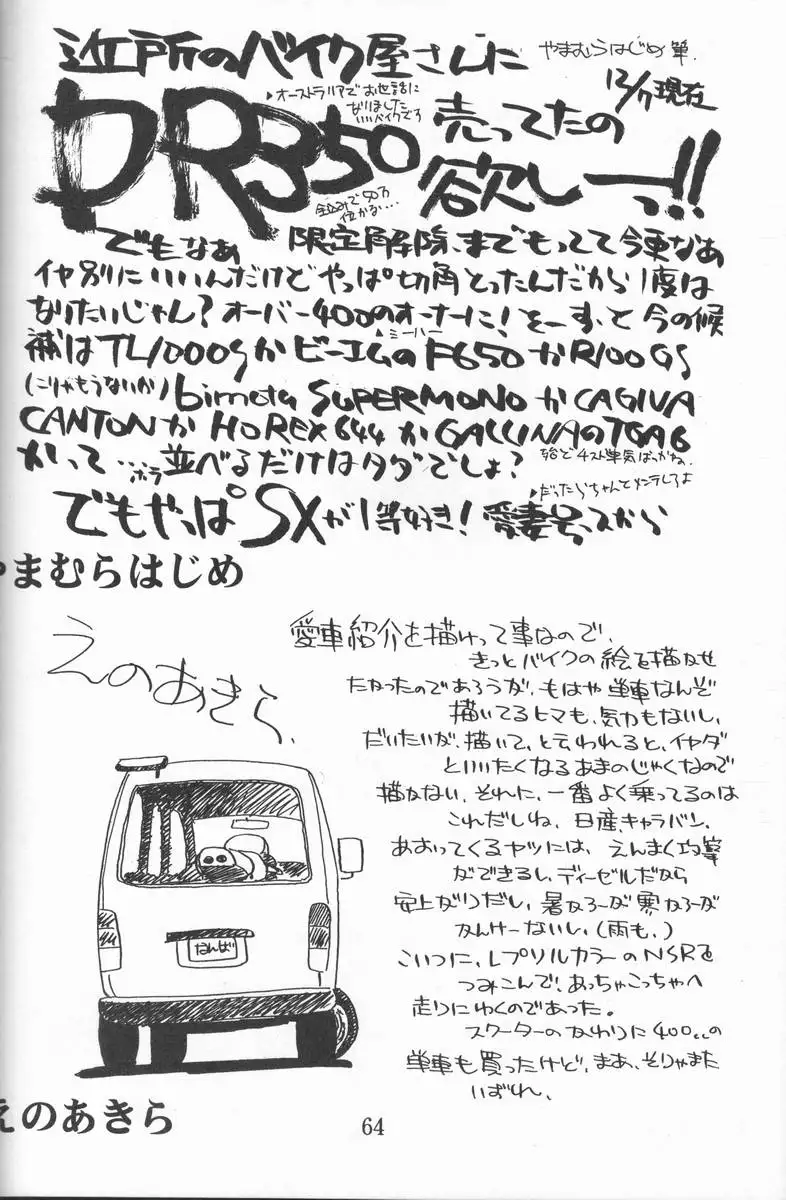 近所のバイク屋さんに
やまむらはじめ 筆.
12/17現在
▶オーストラリアでお世話に
なりました
いいバイクです
DR350 売ってたの
欲しーっ!!
全込みで50万
位かな...
でもなぁ 限定解除、までもってて今更なぁ
イヤ別にいいんだけどやっぱ切角とったんだから1度は
なりたいじゃん?オーバー400のオーナーに!そーすっと今の候
▲ミーハー
補はTL1000SかビーエムのF650かR100GS
(こりゃもうないか) bimota SUPERMONOかCAGIVA
CANYONか HOREX644かGALLINAのTGA6
かって... ホラ 並べるだけはタダでしょ?
▶だったらちゃんとメンテしろよ
でもやっぱSXが1等好き! 愛妻号っスから
やまむらはじめ
えのあきら、
愛車紹介を描けって事なので、
きっとバイクの絵を描かせ
たかったのであろうが、もはや単車なんぞ
描いてるヒマも、気力もないし、
だいたいが、描いて、と云われると、イヤダ
といいたくなるあまのじゃくなので
描かない、それに、一番よく乗ってるのは
これだしね、日産キャラバン、
あおってくるヤツには、えんまく攻撃
ができるし、ディーゼルだから
安上がりだし、暑かろーが寒かろーが
かんけーないし、(雨も、)
こいつに、レプソルカラーのNSRを
つみこんで、あっちゃこっちゃへ
走りにゆくのであった。
スクーターのかわりに400ccの
単車も買ったけど、まあ、そりゃまた
いずれ、
なんば
えのあきら
64